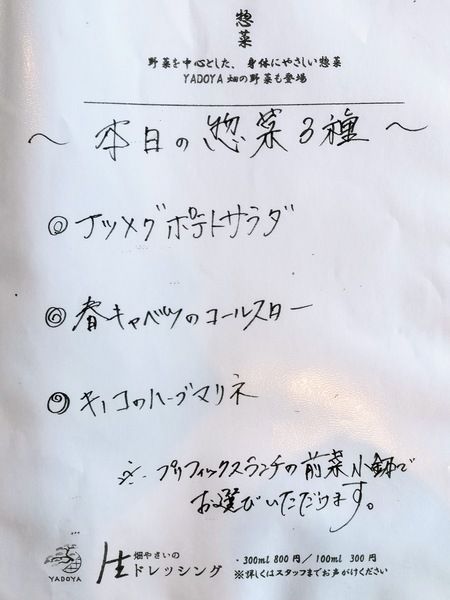 惣菜
野菜を中心とした、身体にやさしい惣菜
YADOYA 畑の野菜も登場
～ 本日の惣菜3種 ～
◎ ナツメグポテトサラダ
◎ 春キャベツのコールスロー
◎ キノコのハーブマリネ
※ プリフィックスランチの前菜小鉢で
お選びいただけます。
YADOYA
畑やさいの
生ドレッシング
・300ml 800円／100ml 300円
※詳しくはスタッフまでお声がけください